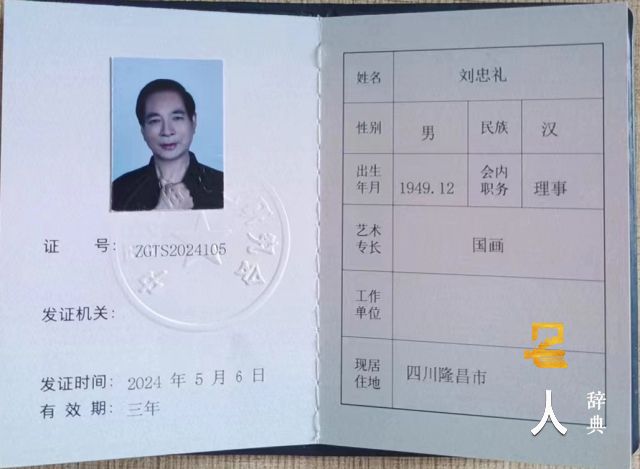 证 号: ZGTS2024105
发证机关:
发证时间: 2024 年 5 月 6 日
有 效 期: 三年
姓名 刘忠礼
性别 男 民族 汉
出生年月 1949.12 会内职务 理事
艺术专长 国画
工作单位
现居住地 四川隆昌市
人 辞典